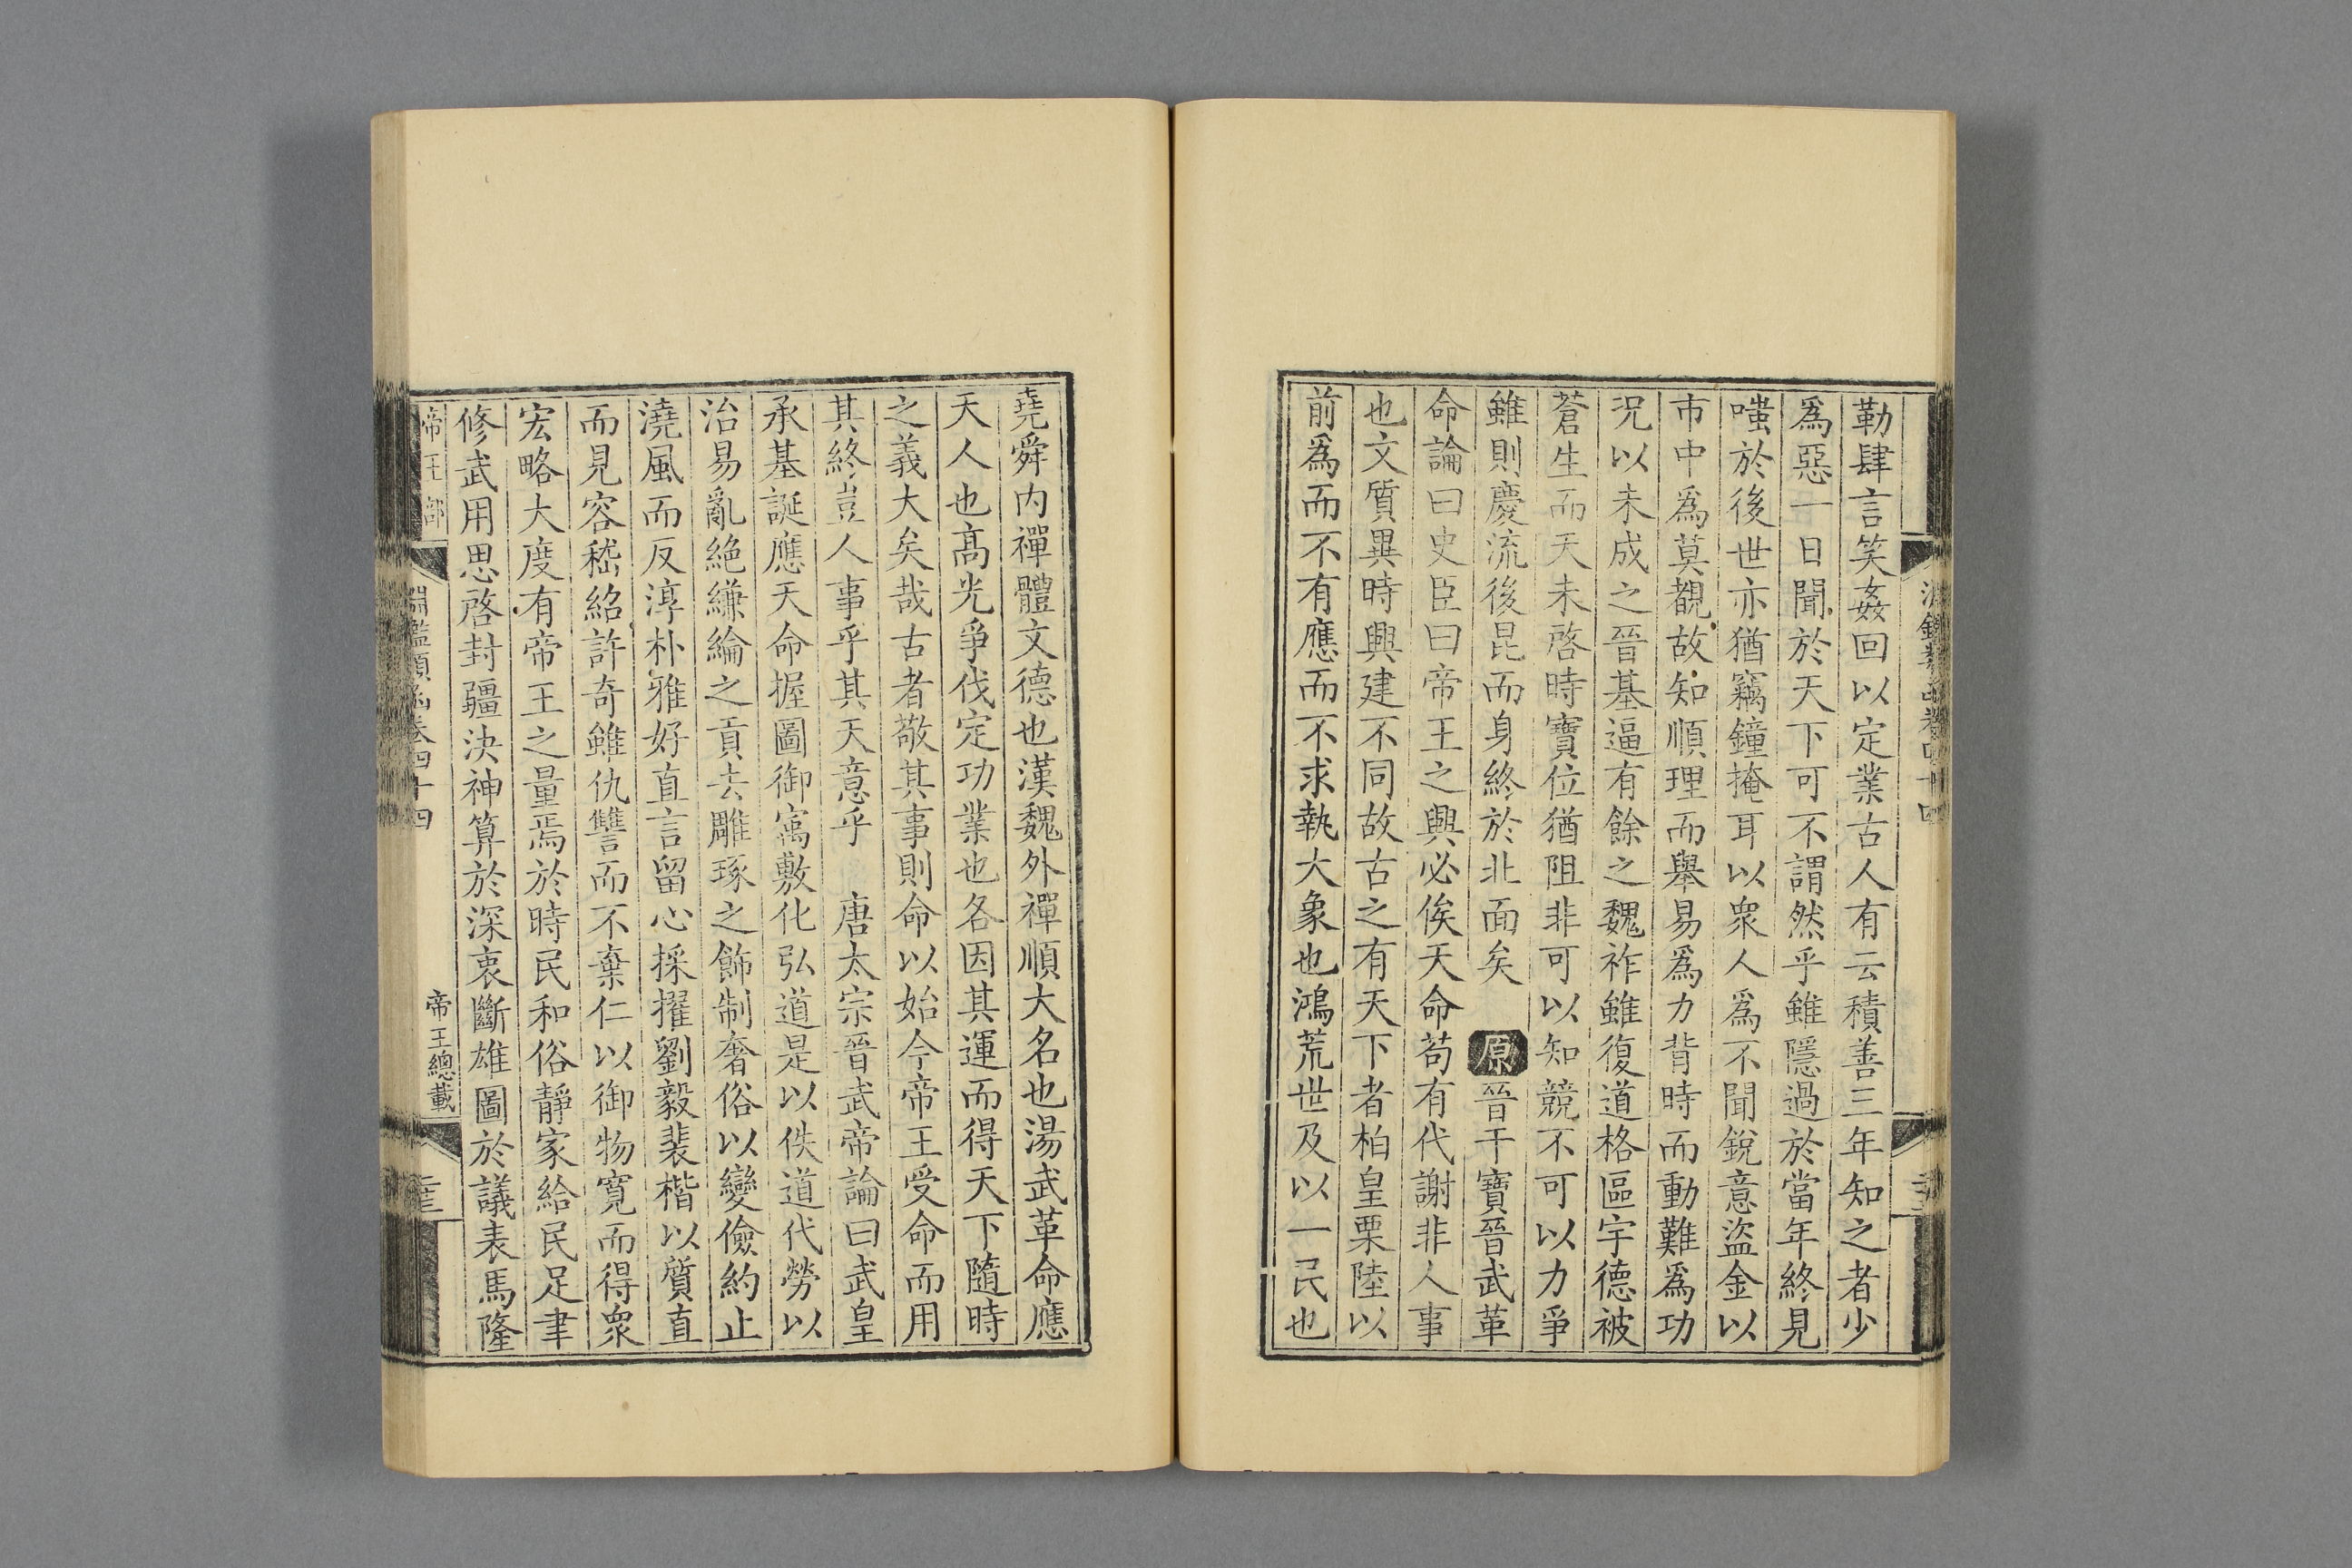 勒肆言笑姦回以定業古人有云積善三年知之者少
爲惡一日聞於天下可不謂然乎雖隱過於當年終見
嗤於後世亦猶竊鐘掩耳以衆人爲不聞銳意盜金以
市中爲莫覩故知順理而舉易爲力背時而動難爲功
況以未成之晉基逼有餘之魏祚雖復道格區宇德被
蒼生而天未啓時寶位猶阻非可以知競不可以力爭
雖則慶流後昆而身終於北面矣　原晉干寶晉武革
命論曰史臣曰帝王之興必俟天命苟有代謝非人事
也文質異時興建不同故古之有天下者柏皇栗陸以
前爲而不有應而不求執大象也鴻荒世及以一民也
堯舜内禪體文德也漢魏外禪順大名也湯武革命應
天人也高光爭伐定功業也各因其運而得天下隨時
之義大矣哉古者敬其事則命以始今帝王受命而用
其終豈人事乎其天意乎　唐太宗晉武帝論曰武皇
承基誕應天命握圖御㝢敷化弘道是以佚道代勞以
治易亂絶縑綸之貢去雕琢之飾制奢俗以變儉約止
澆風而反淳朴雅好直言留心採擢劉毅裴楷以質直
而見容嵇紹許奇雖仇讐而不棄仁以御物寬而得衆
宏略大度有帝王之量焉於時民和俗靜家給民足聿
修武用思啓封疆決神算於深衷斷雄圖於議表馬隆
帝王部
淵鑑類函卷四十四
帝王總載